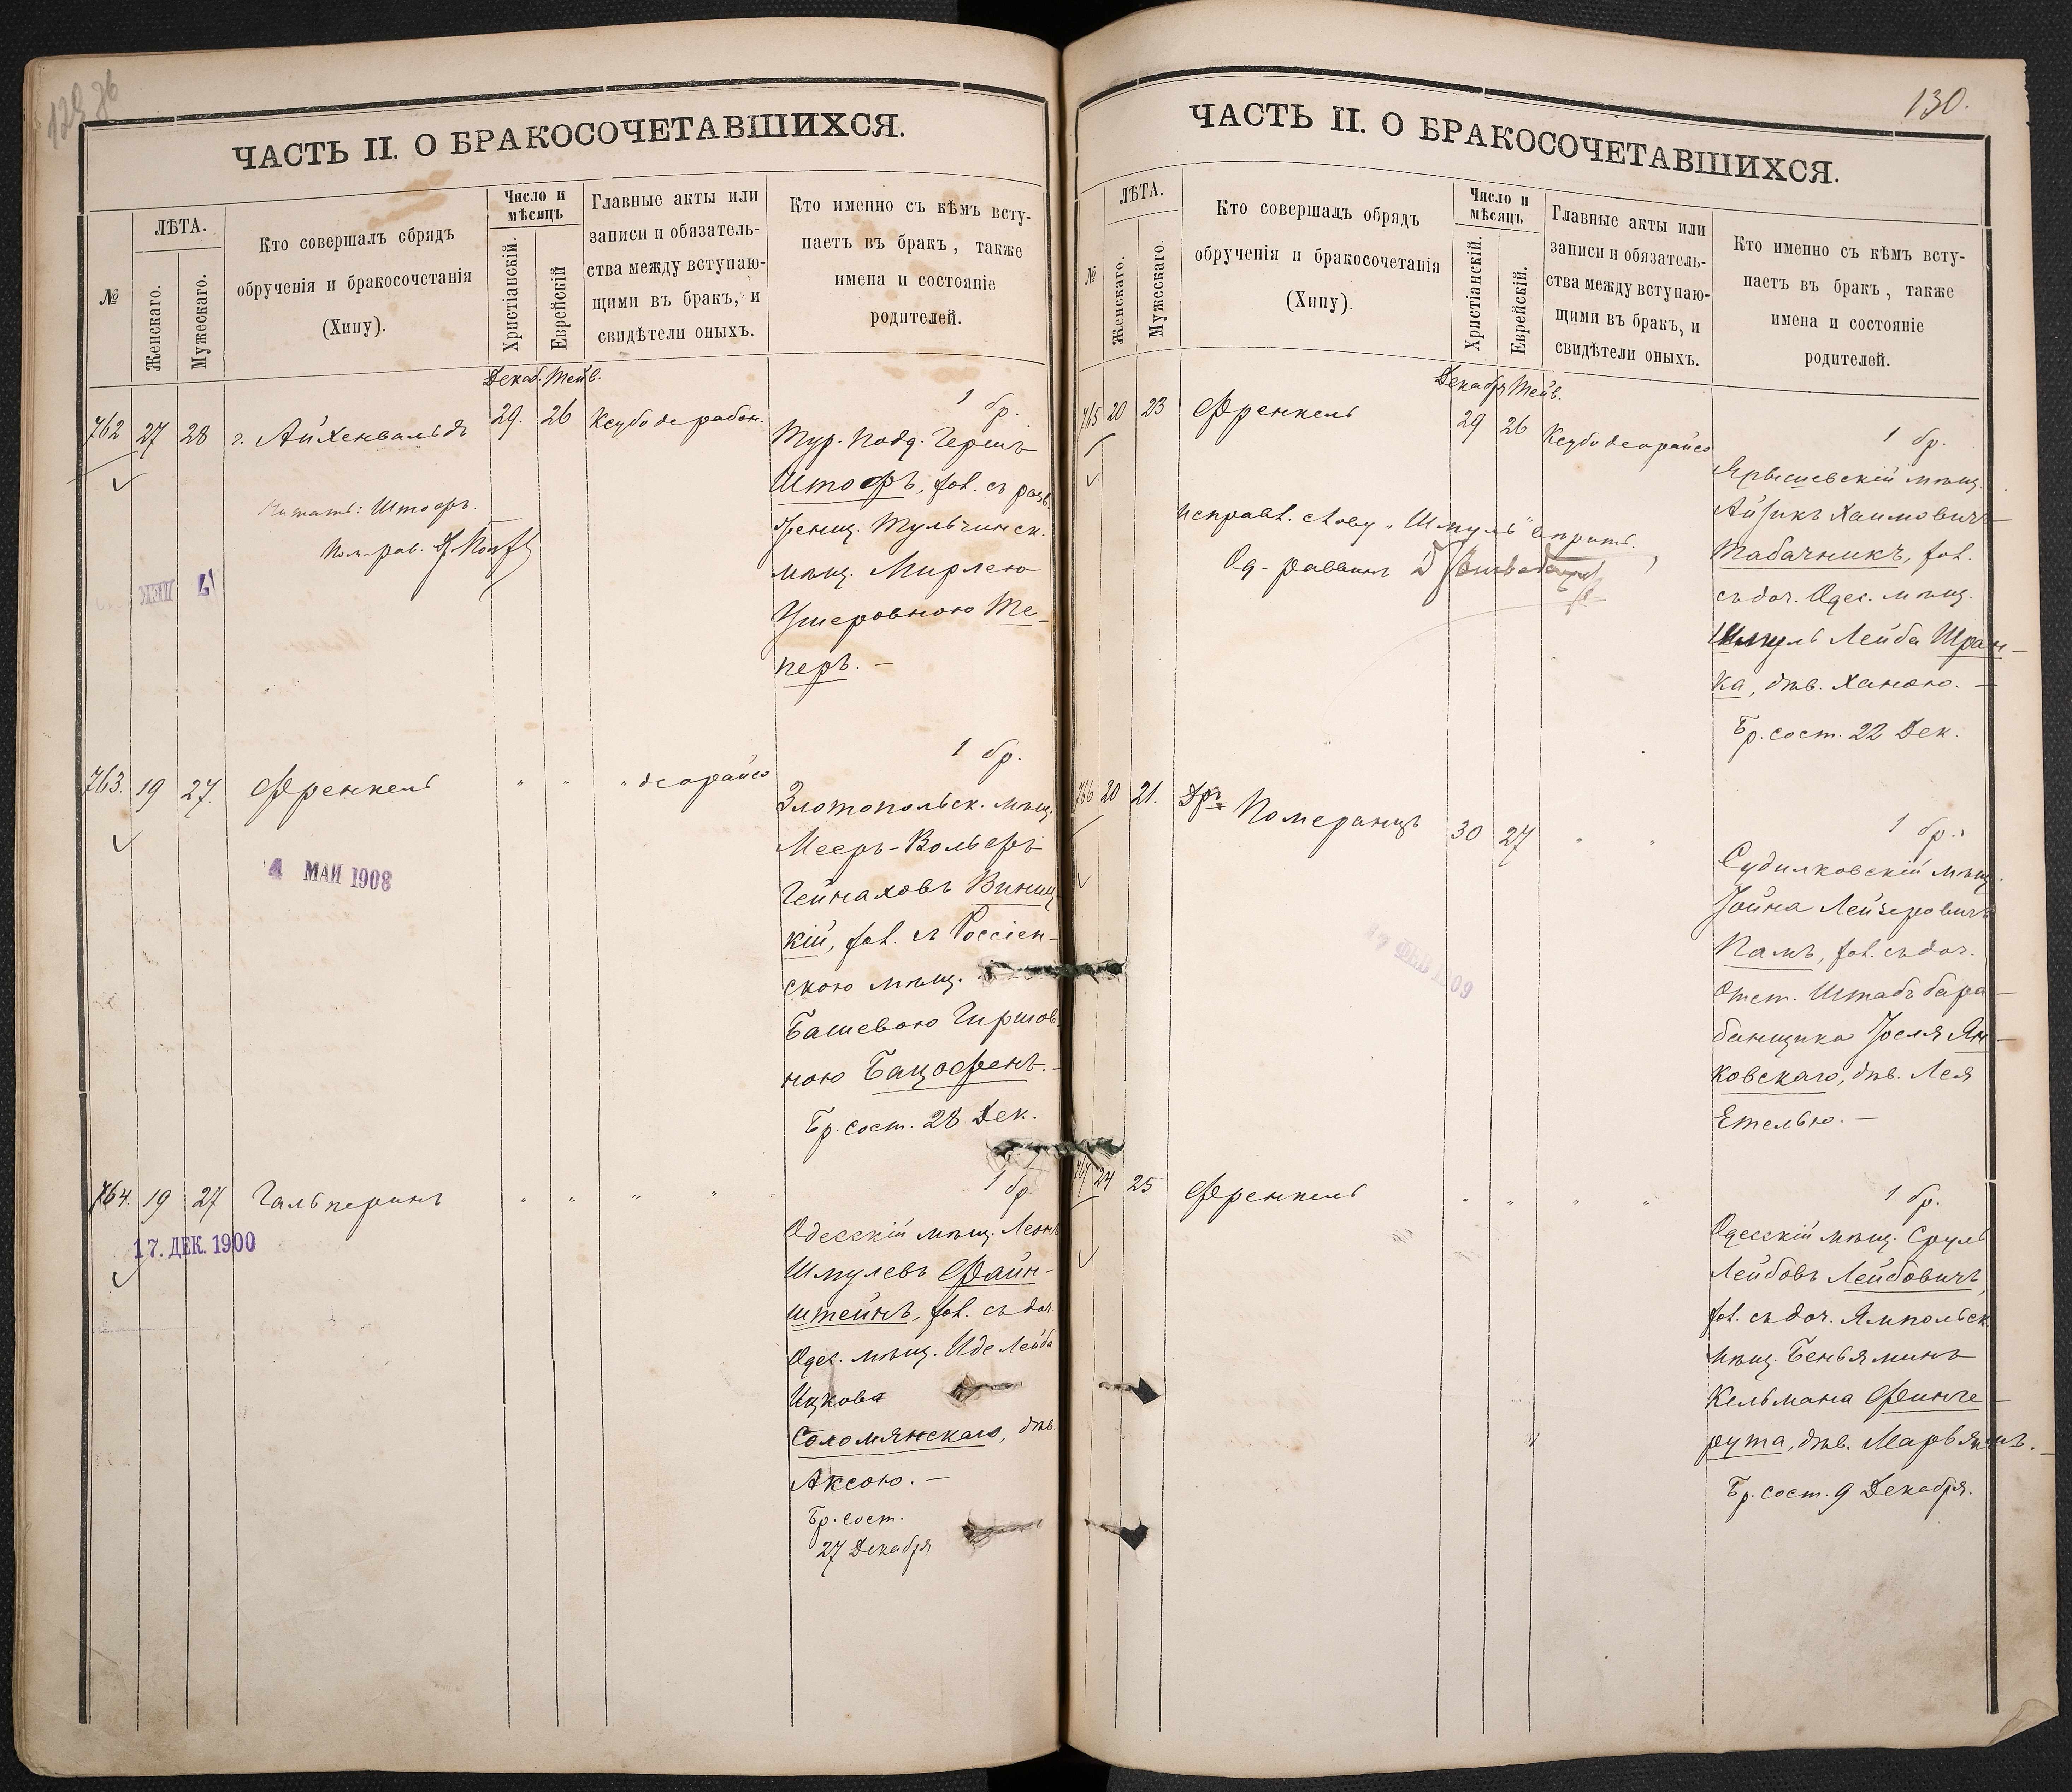 ЧАСТЬ II. О БРАКОСОЧЕТАВШИХСЯ.
№
ЛѢТА.
Женскаго.
Мужескаго.
Кто совершалъ обрядъ
обрученія и бракосочетанія
(Хипу).
Число и
мѣсяцъ
Христіанскій.
Еврейскій
Главные акты или
записи и обязатель-
ства между вступаю-
щими въ бракъ, и
свидѣтели оныхъ.
Кто именно съ кѣмъ всту-
паетъ въ бракъ, также
имена и состояніе
родителей.
Декаб. Тейв.
762 27 28 г. Айхенвальдъ 29. 26 Ксубо дерабон.
1 бр.
Тур. подд. Гершъ
Штофъ, хол. съ разв.
женщ. Тульчинск.
мѣщ. Мирлею
Ушеровною Те-
перъ. —
Читать: Штофъ.
Пом. рав.
763. 19 27. Френкель " " " деорайсо
1 бр.
Златопольск. мѣщ.
Мееръ-Вольфъ
Гейнаховъ Виниц-
кій, хол. съ Россіен-
скою мѣщ.
Башевою Гиршов-
ною Бацофенъ. -
Бр. сост. 28 Дек.
4 МАЙ 1908
764. 19 27 Гальперинъ " " " "
17. ДЕК. 1900
1 бр.
Одесскій мѣщ. Леонъ
Шмулевъ Файн-
штейнъ, хол. съ доч.
Одес. мѣщ. Иде Лейба
Ицкова
Соломянскаго, дѣв.
Аксою. —
Бр. сост.
27 Декабря
130.
ЧАСТЬ II. О БРАКОСОЧЕТАВШИХСЯ.
№
ЛѢТА.
Женскаго.
Мужескаго.
Кто совершалъ обрядъ
обрученія и бракосочетанія
(Хипу).
Число и
мѣсяцъ
Христіанскій.
Еврейскій.
Главные акты или
записи и обязатель-
ства между вступаю-
щими въ бракъ, и
свидѣтели оныхъ.
Кто именно съ кѣмъ всту-
паетъ въ бракъ, также
имена и состояніе
родителей.
Декабря Тейв.
765 20 23 Френкель 29 26 Ксубо деорайсо
1 бр.
Ярышевскій мѣщ.
Айзикъ Хаимовичъ
Табачникъ, хол.
съ доч. Одес. мѣщ.
Шмуль Лейба Шран-
ка, дѣв. Ханою. —
Бр. сост. 22 Дек.
Исправл. слову „Шмуль"
Од. раввинъ
766 20 21. Дръ Померанцъ 30 27 " "
1 бр.
Судилковскій мѣщ.
Іойна Лейзеровичъ
Памъ, хол. съ доч.
Отст. Штабъ бара-
банщика Іоселя Ян-
ковскаго, дѣв. Лея
Етелью. —
17 ФЕВ 1909
767 24 25 Френкель " " " "
1 бр.
Одесскій мѣщ. Сруль
Лейбовъ Лейбовичъ,
хол. съ доч. Ямпольск.
мѣщ. Беньяминъ
Кельмана Финге-
рута, дѣв.
Бр. сост. 9 Декабря.